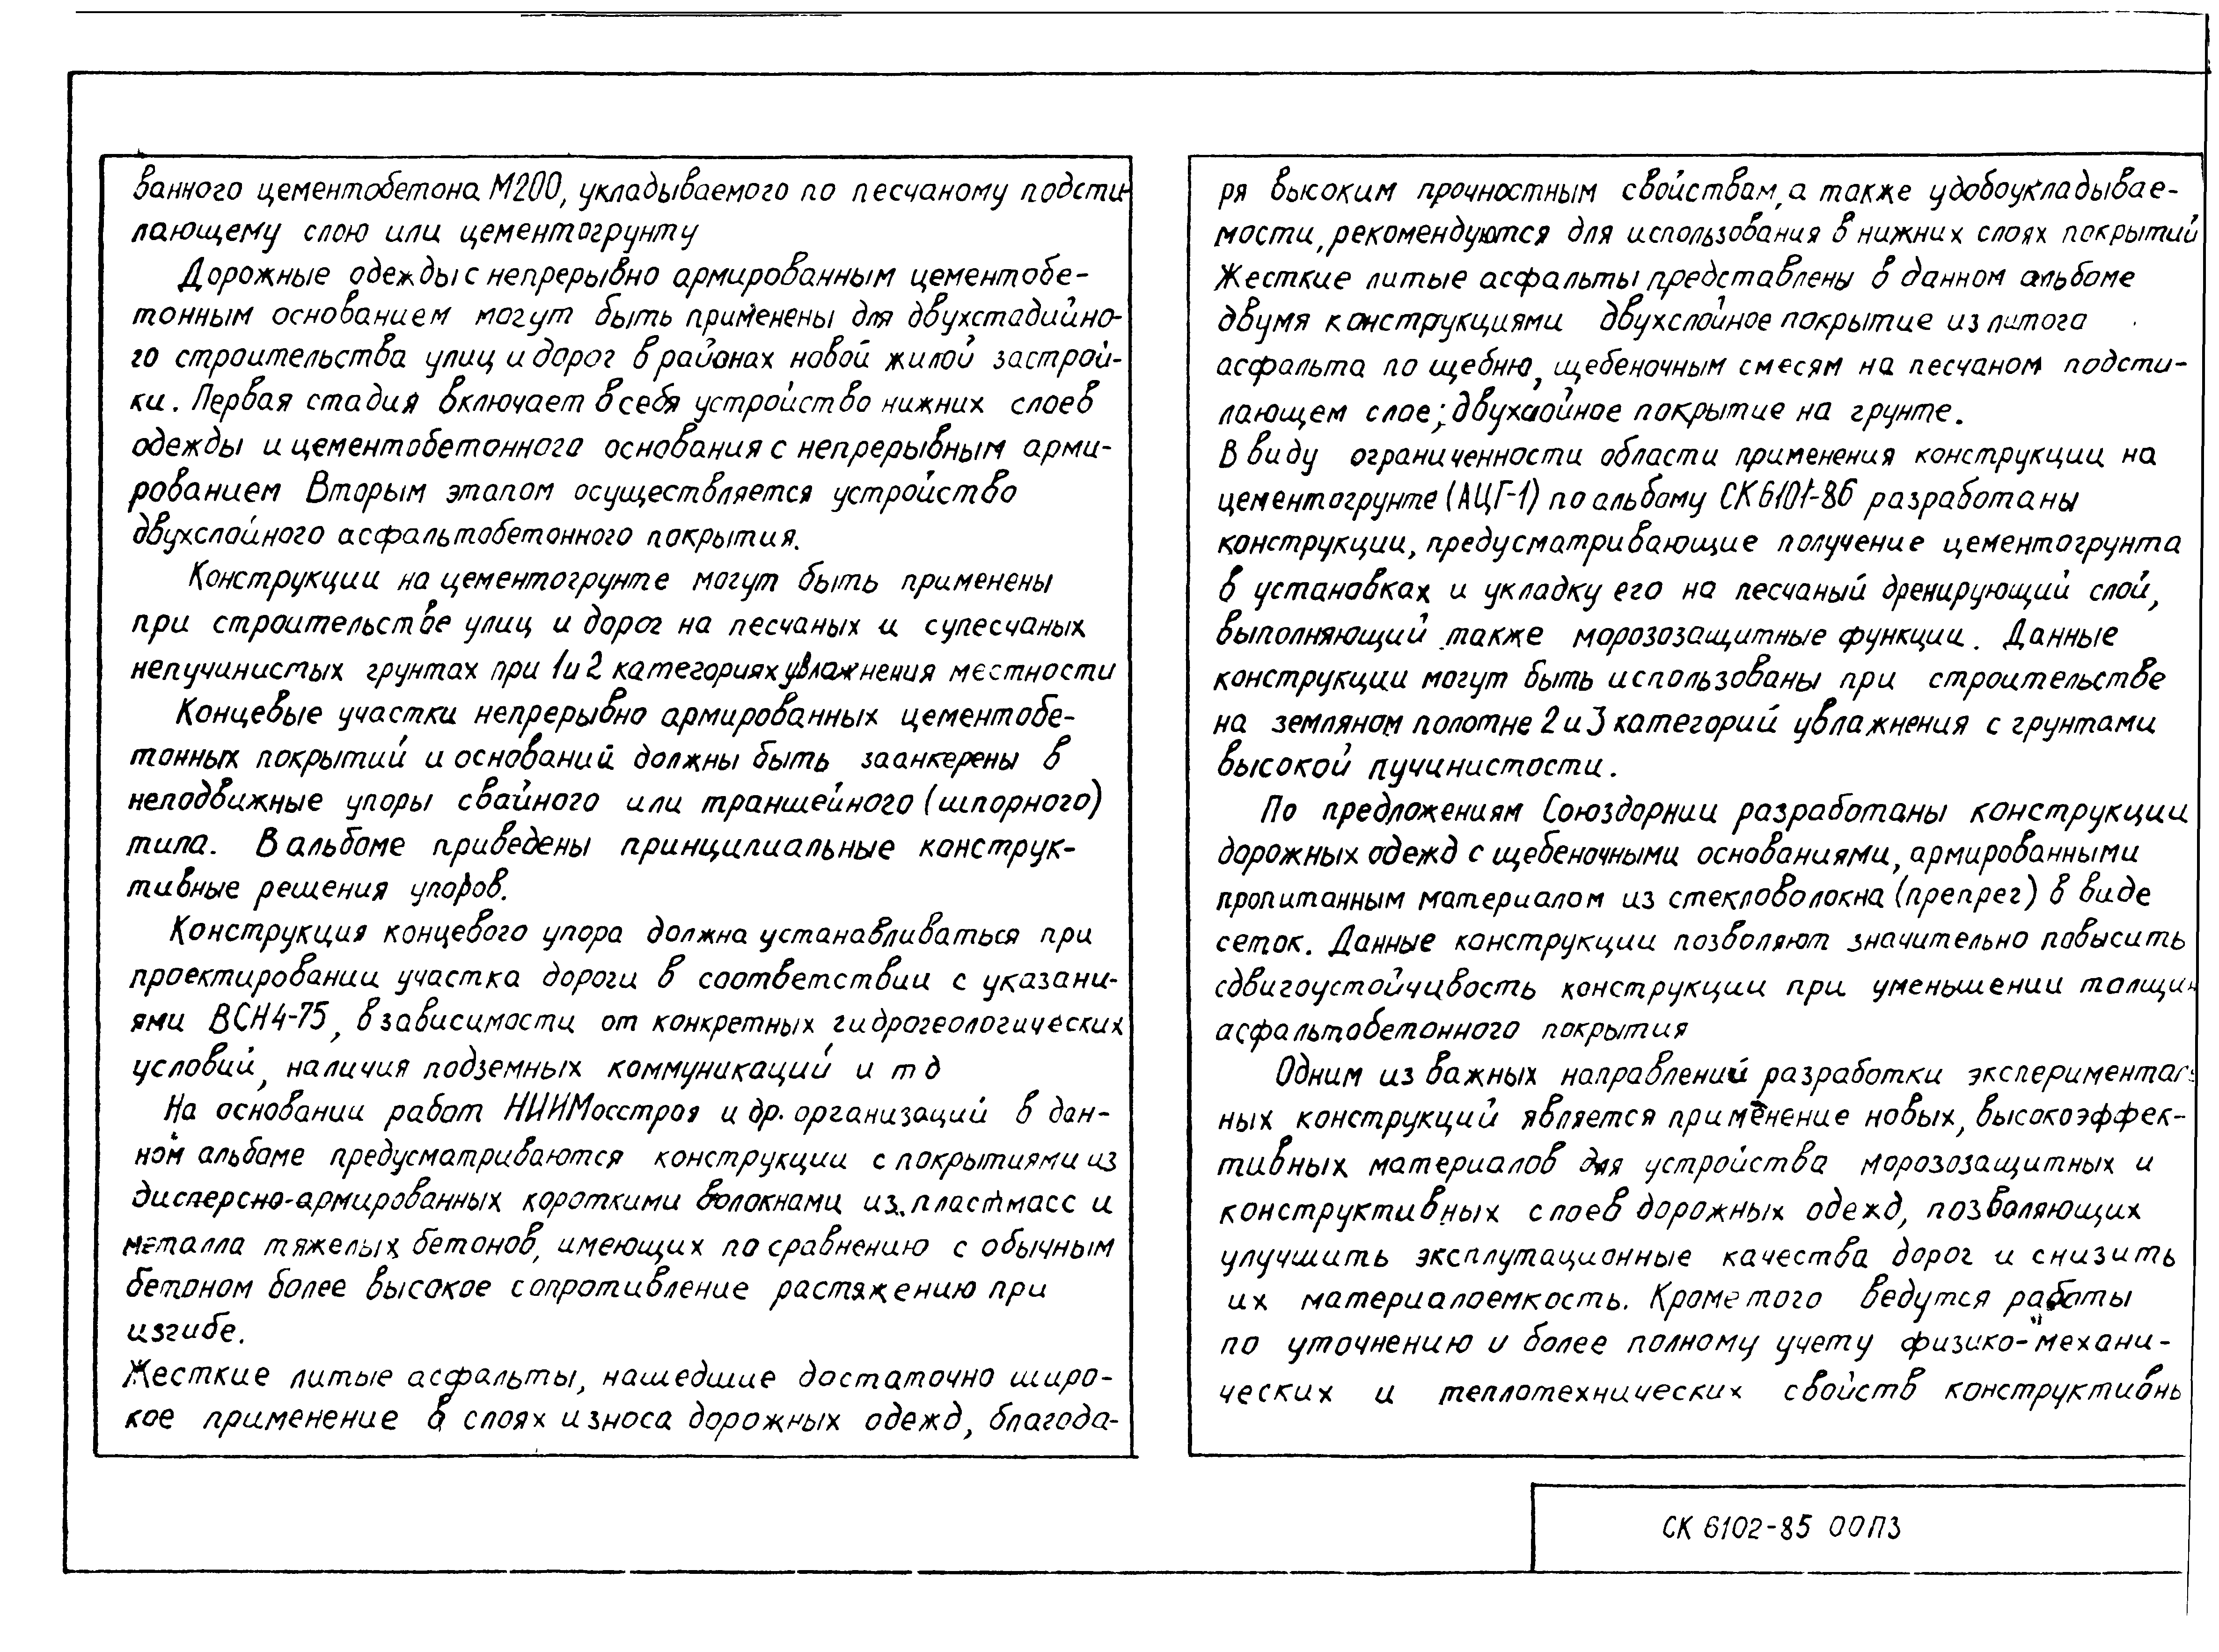 ванного цементобетона М200, укладываемого по песчаному подсти-
лающему слою или цементогрунту
Дорожные одежды с непрерывно армированным цементобе-
тонным основанием могут быть применены для двухстадийно-
го строительства улиц и дорог в районах новой жилой застрой-
ки. Первая стадия включает в себя устройство нижних слоев
одежды и цементобетонного основания с непрерывным арми-
рованием Вторым этапом осуществляется устройство
двухслойного асфальтобетонного покрытия.
Конструкции на цементогрунте могут быть применены
при строительстве улиц и дорог на песчаных и супесчаных
непучинистых грунтах при 1 и 2 категориях увлажнения местности
Концевые участки непрерывно армированных цементобе-
тонных покрытий и оснований должны быть заанкерены в
неподвижные упоры свайного или траншейного (шпорного)
типа. В альбоме приведены принципиальные конструк-
тивные решения упоров.
Конструкция концевого упора должна устанавливаться при
проектировании участка дороги в соответствии с указани-
ями ВСН4-75, в зависимости от конкретных гидрогеологических
условий, наличия подземных коммуникаций и т д
На основании работ НИИМосстроя и др. организаций в дан-
ном альбоме предусматриваются конструкции с покрытиями из
дисперсно-армированных короткими волокнами из пластмасс и
металла тяжелых бетонов, имеющих по сравнению с обычным
бетоном более высокое сопротивление растяжению при
изгибе.
Жесткие литые асфальты, нашедшие достаточно широ-
кое применение в слоях износа дорожных одежд, благода-
ря высоким прочностным свойствам, а также удобоукладывае-
мости, рекомендуются для использования в нижних слоях покрытий
Жесткие литые асфальты представлены в данном альбоме
двумя конструкциями двухслойное покрытие из литого
асфальта по щебню, щебеночным смесям на песчаном подсти-
лающем слое; двухслойное покрытие на грунте.
В виду ограниченности области применения конструкции на
цементогрунте (АЦГ-1) по альбому СК6101-86 разработаны
конструкции, предусматривающие получение цементогрунта
в установках и укладку его на песчаный дренирующий слой,
выполняющий также морозозащитные функции. Данные
конструкции могут быть использованы при строительстве
на земляном полотне 2 и 3 категорий увлажнения с грунтами
высокой пучинистости.
По предложениям Союздорнии разработаны конструкции
дорожных одежд с щебеночными основаниями, армированными
пропитанным материалом из стекловолокна (препрег) в виде
сеток. Данные конструкции позволяют значительно повысить
сдвигоустойчивость конструкции при уменьшении толщин
асфальтобетонного покрытия
Одним из важных направлений разработки эксперименталь
ных конструкций является применение новых, высокоэффек-
тивных материалов для устройства морозозащитных и
конструктивных слоев дорожных одежд, позволяющих
улучшить эксплутационные качества дорог и снизить
их материалоемкость. Кроме того ведутся работы
по уточнению и более полному учету физико-механи-
ческих и теплотехнических свойств конструктивны
СК 6102-85 00ПЗ